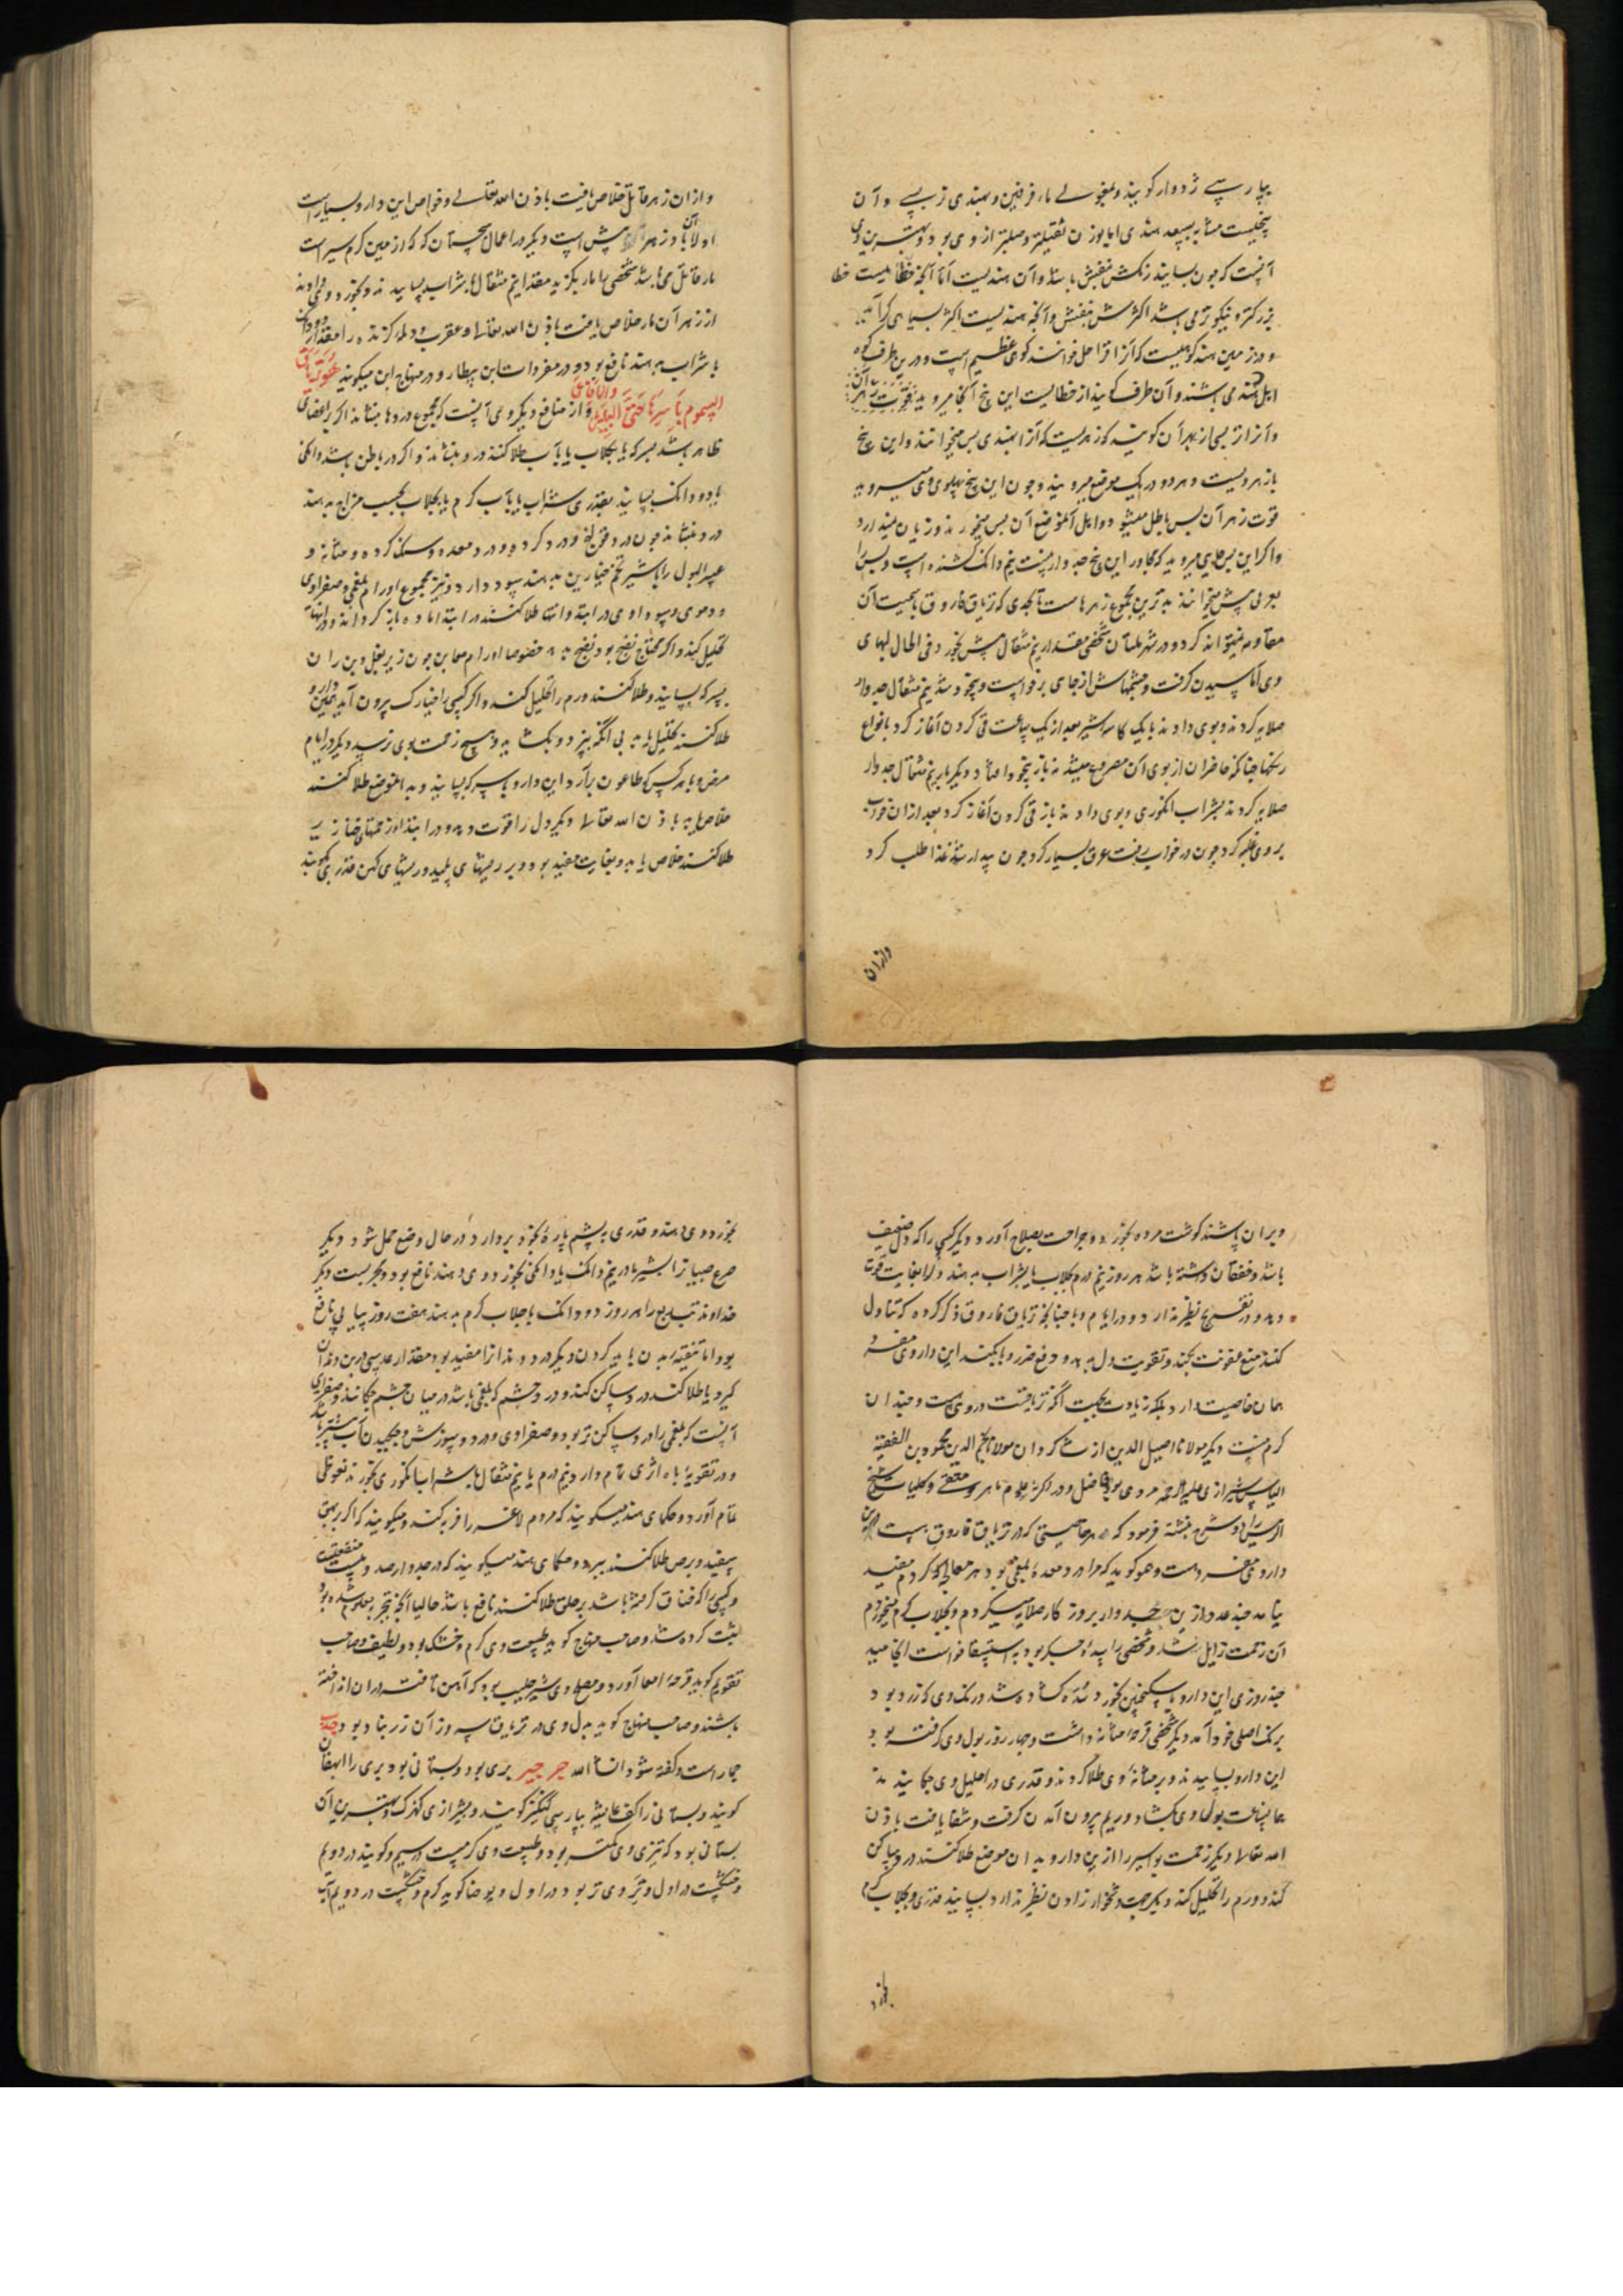 بپارسی ژدوار کویند و بمغولی ماء فرفین و بهندی نربسی و آن
بیخیست مشابه بسعد هندی اما بوزن ثقیلتر و صلبتر از وی بود و بهترین وی
آنست که چون بسایند رنکش بنفش باشد و آن هندیست اما آنچه خطائیست خطا
بزرکتر و نیکوتر می باشد اکثرش بنفش و آنچه هندیست اکثر بسیاهی کراید
و در زمین هند کوهیست که آنرا قراجل خوانند کوهی عظیم است و درین طرف کوه
اهل هند می باشند و آن طرف کوه نیز از خطاییست این بیخ آنجا میروید
و آنرا نربسی از بهر آن کویند که زهریست که آنرا بهندی بس میخوانند و این بیخ
پازهر ویست و هر دو در یک موضع میرویند و چون این بیخ بپهلوی وی میروید
قوت زهر آن بس باطل میشود و اهل آن موضع آن بس میخورند و زیان نمیدارد
و اکر این بس جایی میروید که مجاور این بیخ جدوار نیست نیم دانک کشنده است و بس را
بعربی بیش میخوانند بدترین مجموع زهرهاست تا بحدی که تریاق فاروق بالخاصیت آن
مقاومه نمیتواند کرد و در شهر ملتان شخصی مقدار نیم مثقال بیش بخورد فی الحال لبهای
وی آماسیدن کرفت و چشمهاش از جای برخواست و بیخود شد نیم مثقال جدوار
صلایه کردند و بوی دادند با یک کاسه شیر بعد از یک ساعت قی کردن آغاز کرد بانواع
رنکها چنانکه حاضران از بوی آن مصروع میشدند باز بیخود افتاد دیکر بار نیم مثقال جدوار
صلایه کردند بشراب انکوری و بوی دادند باز قی کردن آغاز کرد بعد از آن خواب
بر وی غلبه کرد چون در خواب رفت عرق بسیار کرد چون بیدار شد غذا طلب کرد
و از آن
و از ان زهر قاتل خلاص یافت باذن الله تعالی و خواص این دارو بسیار است
اولا آن پادزهر بیش است دیکر در اعمال سجستان که کوه از مین کرم سیر است
مار قاتل می باشد شخصی را مار بکزید مقدار نیم مثقال بشراب بسایید ند و بخورد وی دادند
از زهر آن مار خلاص یافت باذن الله تعالی و عقرب و دله کزنده را مقدار دو دانک
با شراب بدهند نافع بود و در مفردات ابن بیطار و در منهاج این میکویند هو تریاق
السموم باسرها حتی البیش والافاعی و از منافع دیکر وی آنست که مجموع دردها بنشاند اکر بر اعضای
ظاهر باشد بسرکه یا بکلاب یا بآب طلا کنند درد بنشاند و اکر در باطن باشد دانکی
یا دو دانک بسایند بقدری شراب یا بآب کرم یا بجلاب بحسب مزاج بدهند
درد بنشاند چون درد قولنج و درد کرده و درد معده و سنک کرده و مثانه و
عسر البول را با شیر تخم خیارین بدهند سود دارد و نیز مجموع اورام بلغمی و صفراوی
و دموی و سوداوی در ابتدا و انتها طلا کنند در ابتدا ماده باز کرداند و در انتها
تحلیل کند و اکر محتاج نضج بود نضج دهد خصوصا اورام مغابن چون زیر بغل و بن ران
بسرکه بسایند و طلا کنند ورم را تحلیل کند و اکر کسی را خیارک بیرون آید همین دارو
طلا کنند تحلیل یابد بی آنکه بپزد و بکشاید و هیچ زحمت بوی نرسد دیکر در ایام
مرض وبا هر کس که طاعون برآرد این دارو با سرکه بسایند و بدان موضع طلا کنند
خلاص یابد باذن الله تعالی دیکر دل را قوت دهد و در ابتدا و زحمتهای خنازیر
طلا کنند خلاص یابد و بغایت مفید بود و بر ریشهای پلید و ریشهای کهن قدری بکوبند
و بر ان پاشند کوشت مرده بخورد و جراحت بصلاح آورد دیکر کسی را که دل ضعیف
باشد و خفقان داشته باشد هر روز نیم درم بجلاب یا بشراب بدهند دل را بغایت قوت
دهد و در تفریح نظیر ندارد و در ایام وبا چنانچه تریاق فاروق ذکر کرده که تناول
کنند منع عفونت بکند و تقویت دل بدهد و دفع ضرر وبا بکند این داروی مفرد
همان خاصیت دارد بلکه زیادت بجهت آنکه تریاقیت در وی است و چندان
کرم نیست دیکر مولانا اصیل الدین از شاکردان مولانا نجم الدین محمود بن الفقیه
الیاس شیرازی علیه الرحمه مردی بود فاضل و در اکثر علوم ماهر و متقی و کلیات شیخ
الرئیس را خوش نبشته فرمود که هر خاصیتی که در تریاق فاروق هست درین
داروی مفرد هست و هم او کوید که مرا درد معده بلغمی بود هر معالجه که کردم مفید
نیامد چند عدد ازین جدوار بروز کار صلایه میکردم و بجلاب کرم میخوردم
آن زحمت زایل شد و شخصی را سده جکر بود به استسقا خواست انجامید
چند روزی این دارو با سکنجبین بخورد سده کشاده شد و رنک وی که زرد بود
برنک اصلی خود آمد دیکر شخصی قرحه مثانه داشت و چهار روز بول وی کرفته بود
این دارو بساییدند و بر مثانه وی طلا کردند و قدری در احلیل وی چکانیدند
همان ساعت بول وی بکشاد و ریم بیرون آمدن کرفت و شفا یافت باذن
الله تعالی دیکر زحمت بواسیر را ازین دارو بدان موضع طلا کنند درد ساکن
کند و ورم را تحلیل کند دیکر جهت دشخوار زادن نظیر ندارد بسایند قدری و بجلاب کرم
بخورد
بخورد وی دهند و قدری بپشم پاره بخود بردارد در حال وضع حمل شود دیکر
صرع صبیان را بشیر مادر نیم دانک یا دانکی بخورد وی دهند نافع بود و مجربست دیکر
خداوند تب ربع را هر روز دو دانک با جلاب کرم بدهند هفت روز پیاپی نافع
بود اما تنقیه بدن باید کردن دیکر درد دندانرا مفید بود مقدار عدسی در بن دندان
کیرد یا طلا کند درد ساکن کند و درد چشم که بلغمی باشد در میان چشم چکانند و صفراوی
آنست که بلغمی را درد ساکن تر بود و صفراوی و درد و سوزش و چکیدن آب بیشتر باشد
و در تقویة باه اثری تمام دارد نیم درم یا نیم مثقال با شراب انکوری بخورند نعوظی
تمام آورد و حکمای هند میکویند که مردم لاغر را فربه کند و میکویند که اکر بر بهق
سفید و برص طلا کنند ببرد و حکمای هند میکویند که در جدوار صد و بیست منفعتست
و کسی را که خناق کرفته باشد بر حلق طلا کنند نافع باشد حالیا آنچه بتجربه معلوم شده بود
ثبت کرده شد و صاحب منهاج کوید طبیعت وی کرم و خشک بود و لطیف و صاحب
تقویم کوید قرحه امعا آورد و مصلح وی شیر حلیب بود که آهن تافته در ان انداخته
باشند و صاحب منهاج کوید بدل وی در تریاق سه وزن آن زرنباد بود جدب
جمار است و کفته شود ان شاء الله جرجیر بری بود و بستانی بود بری را ایهقان
کویند و بستانی را کف عایشه بپارسی کیکیز کویند و بشیرازی کهزک و بهترین آن
بستانی بود که تیزی وی کمتر بود و طبیعت وی کرمست در سیم و کویند در دوم
و خشکست در اول و تر وی تر بود در اول و یوحنا کوید کرم و خشکست در دوم آب